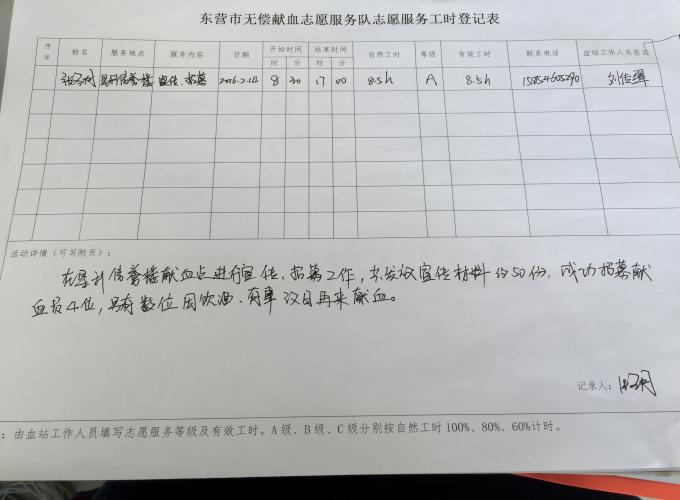 东营市无偿献血志愿服务队志愿服务工时登记表
序号 姓名 服务地点 服务内容 日期 开始时间 结束时间 自然工时 等级 有效工时 联系电话 血站工作人员签名
时 分 时 分
垦利信誉楼 宣传、招募 2016.2.14 8 30 17 00 8.5h A 8.5h 15254605290
活动详情(可另附页):
在垦利信誉楼献血点进行宣传、招募工作,共发放宣传材料约50份,成功招募献
血员4位,另有数位因饮酒、有事改日再来献血。
记录人:
:由血站工作人员填写志愿服务等级及有效工时。A级、B级、C级分别按自然工时100%、80%、60%计时。